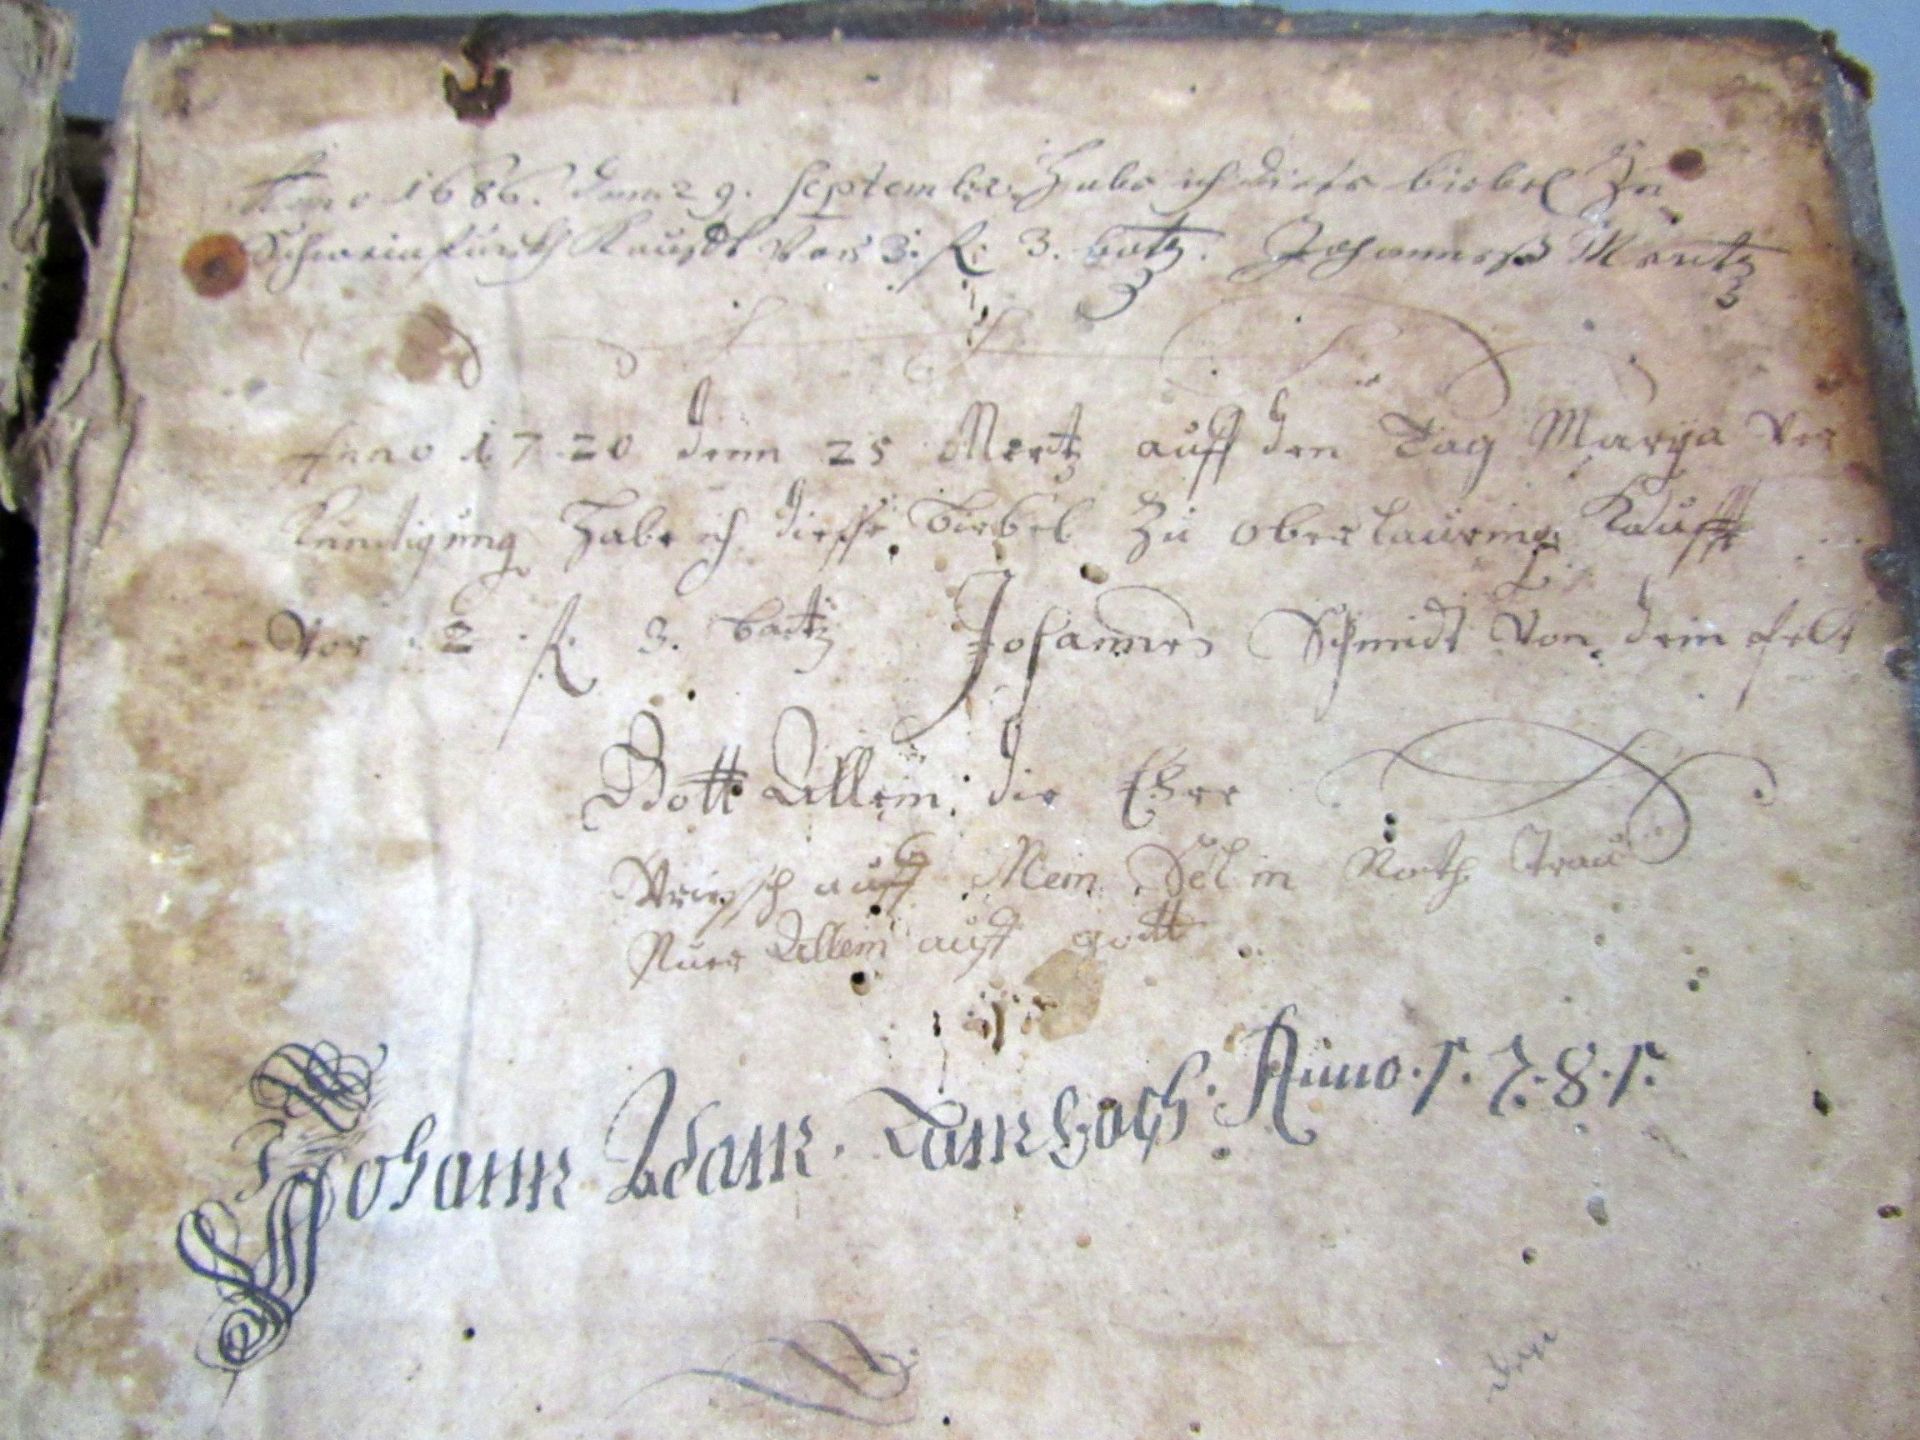 Anno 1686. denn 29. September. Habe ich diese biebel Zu
Schweinfurth Kaufft Vor 3. fl. 3. batz. Johannes Mentz
Anno 1720 denn 25 Mertz auff den Tag Marÿa Ver
Kundigung Habe ich diesse Biebel Zu oberlauring Kaufft
Vor 2 fl. 3. batz Johannes Schmidt Von dem
Gott Allein die Ehre
auff Mein Sel in Noth trau
Nuer Allein auff gott
Johann Adam. Anno. 1. 7. 8. 1.